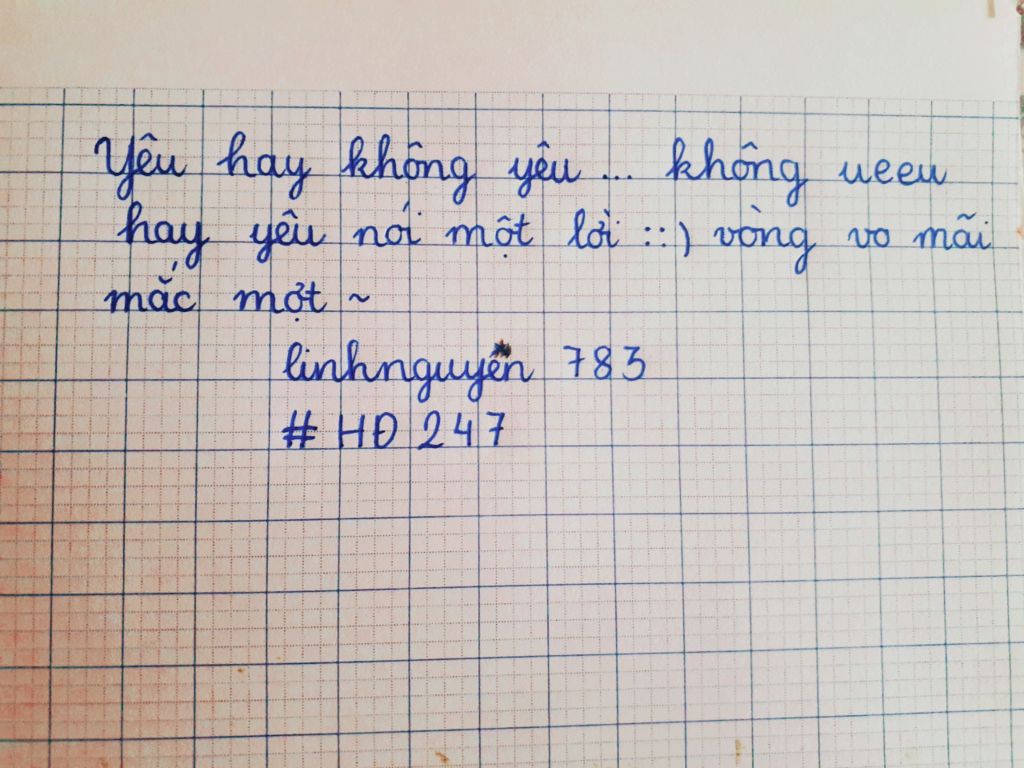 Yêu hay không yêu ... không ueeu
hay yêu nói một lời ::) vòng vo mãi
mắc mợt ~
linhnguyễn 783
# HĐ 247